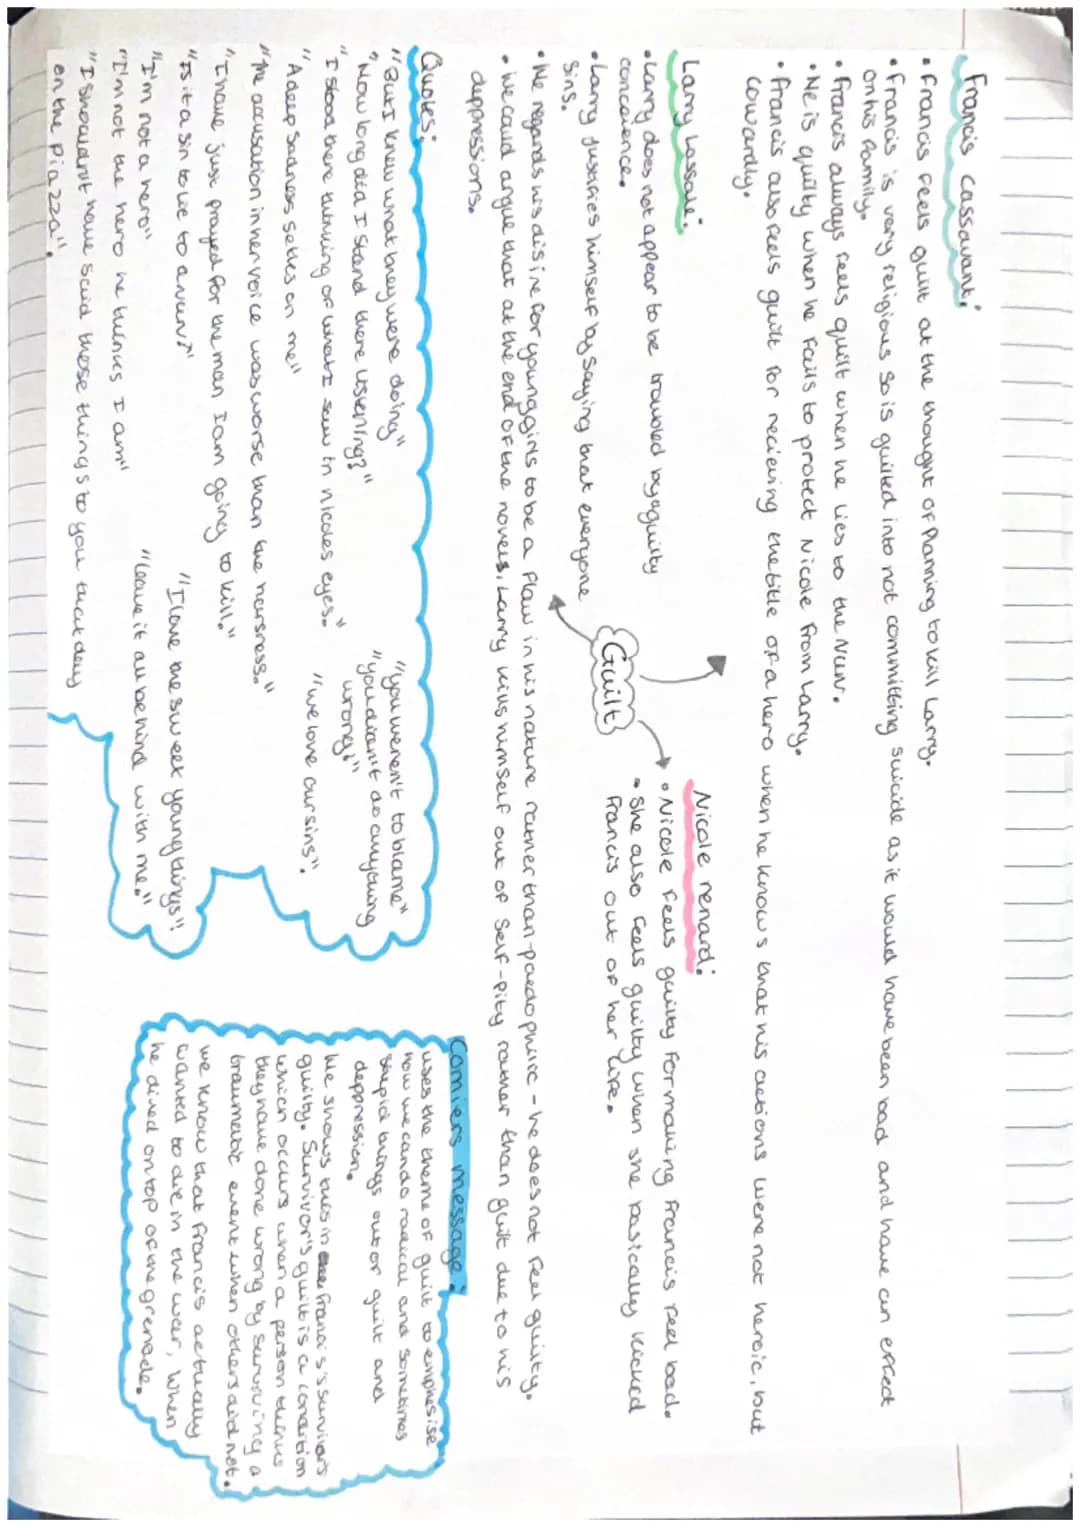 Francis Cassavant:
• Francis feels guilt at the thought of Planning to kill Larry.
• Francis is very religious so is guilted into not committing suicide as it would have been bad and have an effect
on his family.
• Francis always feels guilt when he lies to the Nun.
• He is guilty when he fails to protect Nicole from Larry.
• Francis also feels guilt for recieving the title of a hero when he knows that his actions were not heroic, but
cowardly.
Larry Lasalle:
• Larry does not appear to be trouled by aguilty
concoience.
• Larry justifies himself by saying that everyone
Sins.
• He regards his disire for young girls to be a flaw in his nature rather than paedophilic - he does not feel guilty.
• We could argue that at the end of the novels, Larry kills himself out of Self-Pity rather than guilt due to his
depressions.
Guilt
Nicole renard:
• Nicole feels guilty for making Francis feel bad.
• She also feels guilty when she basically kicked
Francis out of her life.
Quotes:
"But I knew what they were doing"
"How long did I stand there listening?"
"I stood there thinking of what I saw in nicoles eyes."
"A deep sadness settles on me"
"The accusation in her voice was worse than the harsness."
"I have just prayed for the man I am going to kill."
"Is it a sin to lie to a nun?"
"I'm not a hero"
"I'm not the hero he thinks I am"
"I shouldn't have said those things to you that day
on the piazza".
"you weren't to blame"
"you didn't do anything
wrong."
"we love our sins".
"I love the sweet young things"
"Leave it all behind with me."
Comiers message:
uses the theme of guilt to emphasise
how we can do radical and sometimes
stupid things out of guilt and
deppression.
He shows this in Francis's survivors
guilty. Survivor's guilt is a condition
which occurs when a person thinks
they have done wrong by surviving a
traumatic event when others did not.
we know that Francis actually
wanted to die in the war, when
he dived on top of the grenade.